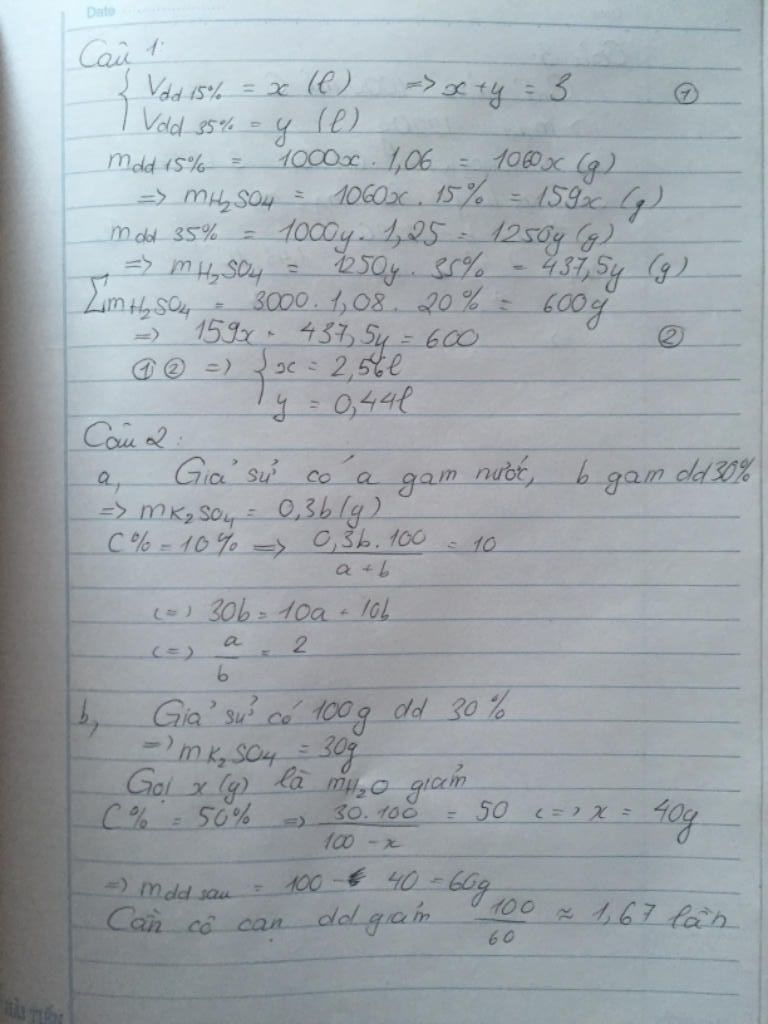 Date
Câu 1:
{ Vdd 15% = x (l) => x+y = 3 ①
Vdd 35% = y (l)
mdd 15% = 1000x . 1,06 = 1060x (g)
=> mH2SO4 = 1060x . 15% = 159x (g)
mdd 35% = 1000y . 1,25 = 1250y (g)
=> mH2SO4 = 1250y . 35% = 437,5y (g)
∑mH2SO4 = 3000 . 1,08 . 20% = 600g
=> 159x + 437,5y = 600 ②
① ② => { x = 2,56l
y = 0,44l
Câu 2:
a, Giả sử có a gam nước, b gam dd 30%
=> mK2SO4 = 0,3b (g)
C% = 10% => 0,3b.100 / a + b = 10
<=> 30b = 10a + 10b
<=> a / b = 2
b, Giả sử có 100g dd 30%
=> mK2SO4 = 30g
Gọi x (g) là mH2O giảm
C% = 50% => 30.100 / 100 - x = 50 <=> x = 40g
=> mdd sau = 100 - 40 = 60g
Cần cô cạn dd giảm 100 / 60 ≈ 1,67 lần